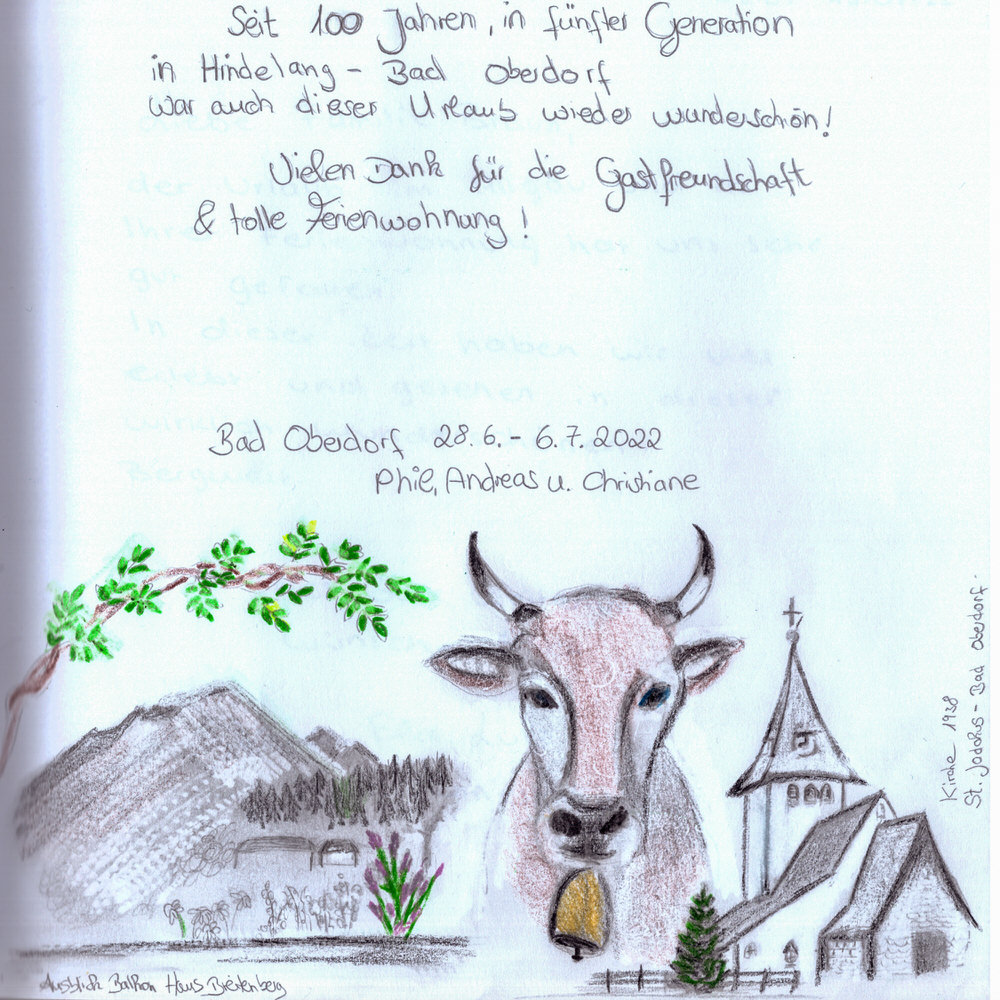 Seit 100 Jahren, in fünfter Generation
in Hindelang - Bad Oberdorf
war auch dieser Urlaub wieder wunderschön!
Vielen Dank für die Gastfreundschaft
& tolle Ferienwohnung!
Bad Oberdorf 28.6. - 6.7.2022
Phil, Andreas u. Christiane
Kirche 1938
St. Jodokus - Bad Oberdorf.
Ausblick Balkon Haus Breitenberg